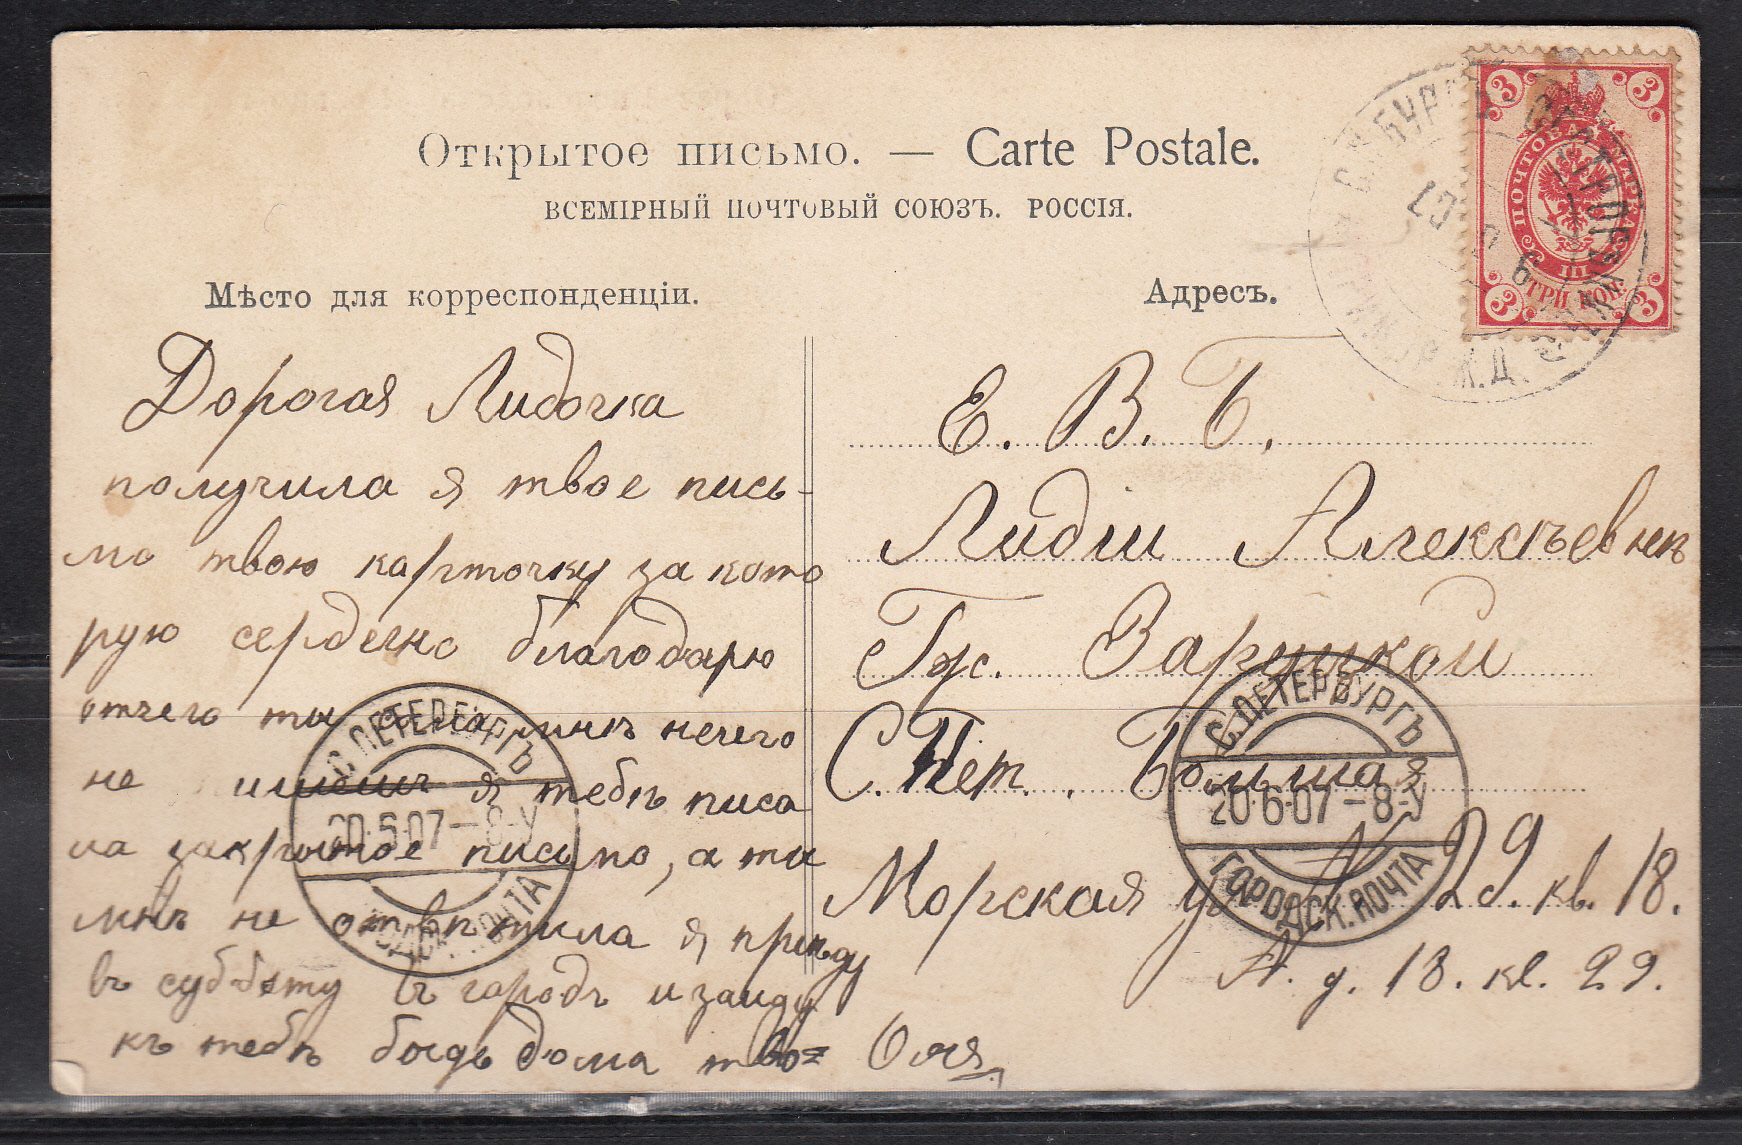 Открытое письмо. — Carte Postale.
ВСЕМІРНЫЙ ПОЧТОВЫЙ СОЮЗЪ. РОССІЯ.
Мѣсто для корреспонденціи.
Адресъ.
3 3
ПОЧТОВАЯ МАРКА
ТРИ КОП.
3 3
Ж.Д.
Дорогая Лидочка
получила я твое пись-
мо твою карточку за кото
рую сердечно благодарю
отчего ты мнѣ нечего
не я тебѣ писа
ла закрытое письмо, а ты
мнѣ не отвѣтила я приѣду
въ субботу въ городъ и зайду
къ тебѣ будь дома твоя Оля
Е. В. Б.
Лидіи Алексѣевнѣ
Гж. Заруцкой
С. Пет. Большая
Морская ул. 29. кв. 18.
д. 18. кв. 29.
С.ПЕТЕРБУРГЪ
20·6·07–8-У
ГОРОДСК.ПОЧТА
С.ПЕТЕРБУРГЪ
20·6·07–8-У
ГОРОДСК.ПОЧТА